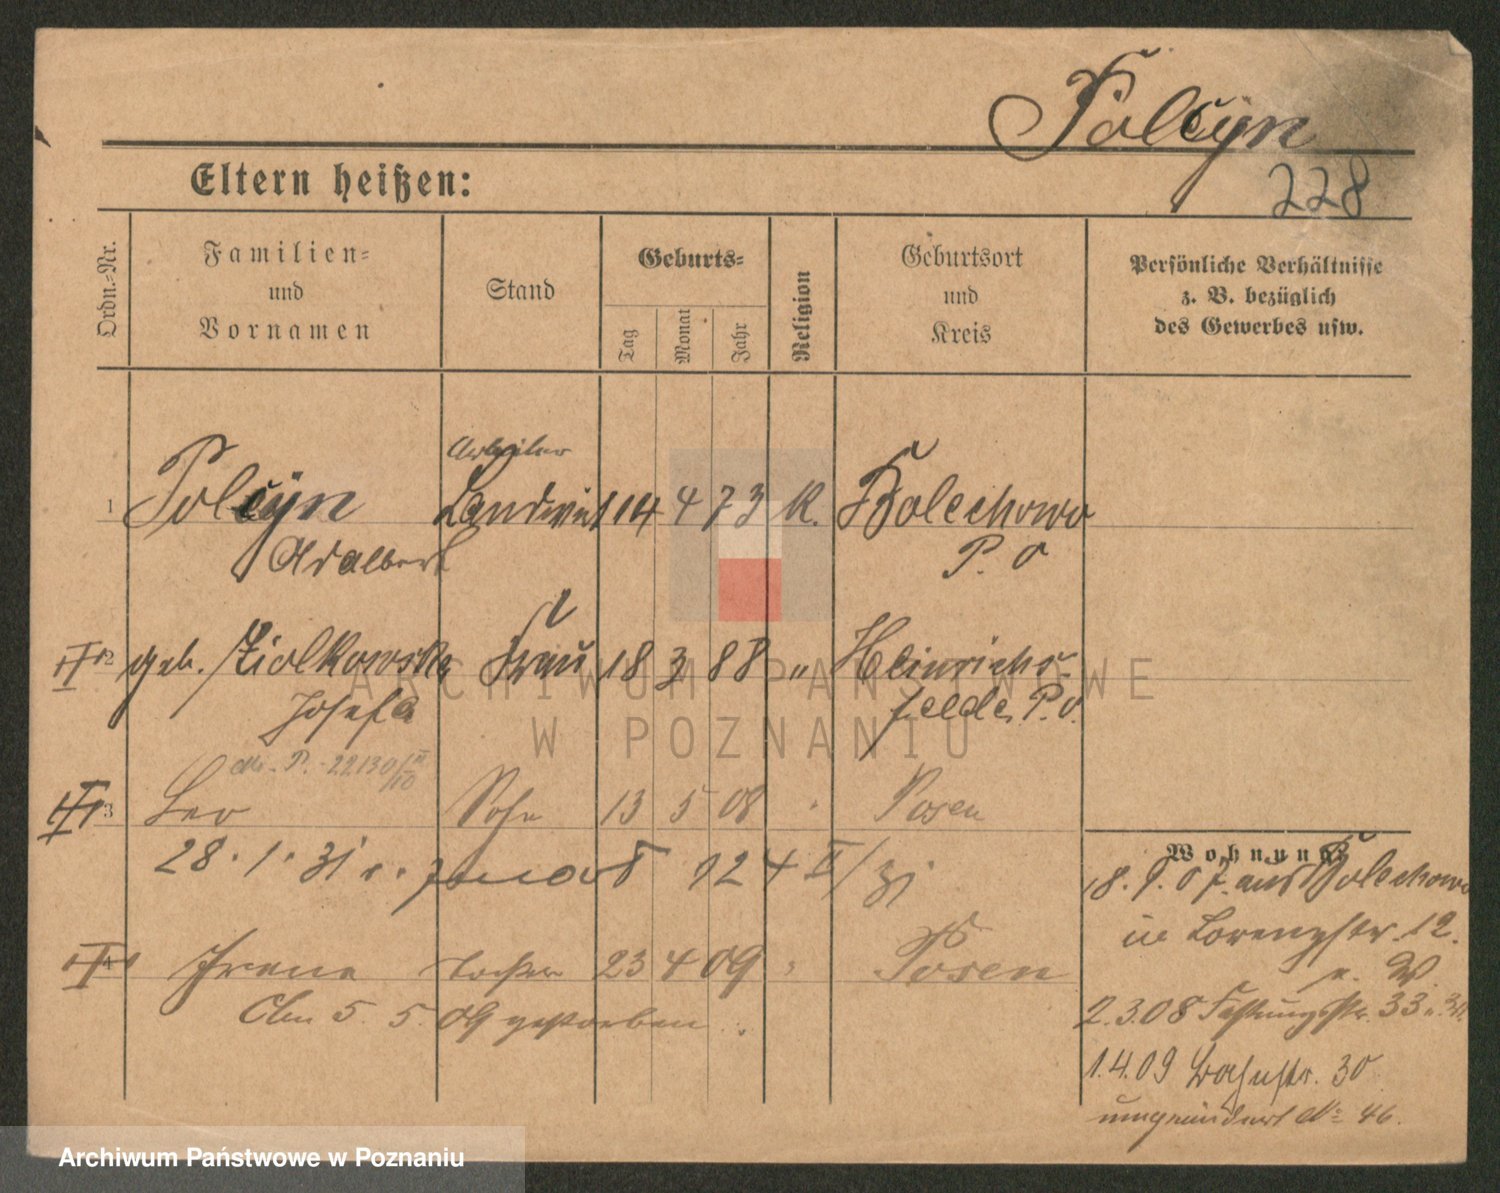 Polcyn
228
Eltern heißen:
Ordn.-Nr.
Familien-
und
Vornamen
Stand
Geburts-
Tag
Monat
Jahr
Religion
Geburtsort
und
Kreis
Persönliche Verhältnisse
z. B. bezüglich
des Gewerbes usw.
Arbeiter
1 Polcyn Landwirt 14 4 73 K. Bolechowo
Adalbert P. O
2 geb. Ziolkowska Frau 18 3 88 " Heinrichs-
Josefa felde P. O.
3 Leo Sohn 13 5 08 " Posen
28. 1. 31
4 Irene Tochter 23 4 09 " Posen
Am 5. 5. 09 gestorben.
Wohnung
aus Bolechowo
in Lorenzstr. 12.
2.3.08 Festungsstr. 33
1.4.09 Bahnstr. 30
umgeändert No 46.
ARCHIWUM PAŃSTWOWE
W POZNANIU
Archiwum Państwowe w Poznaniu